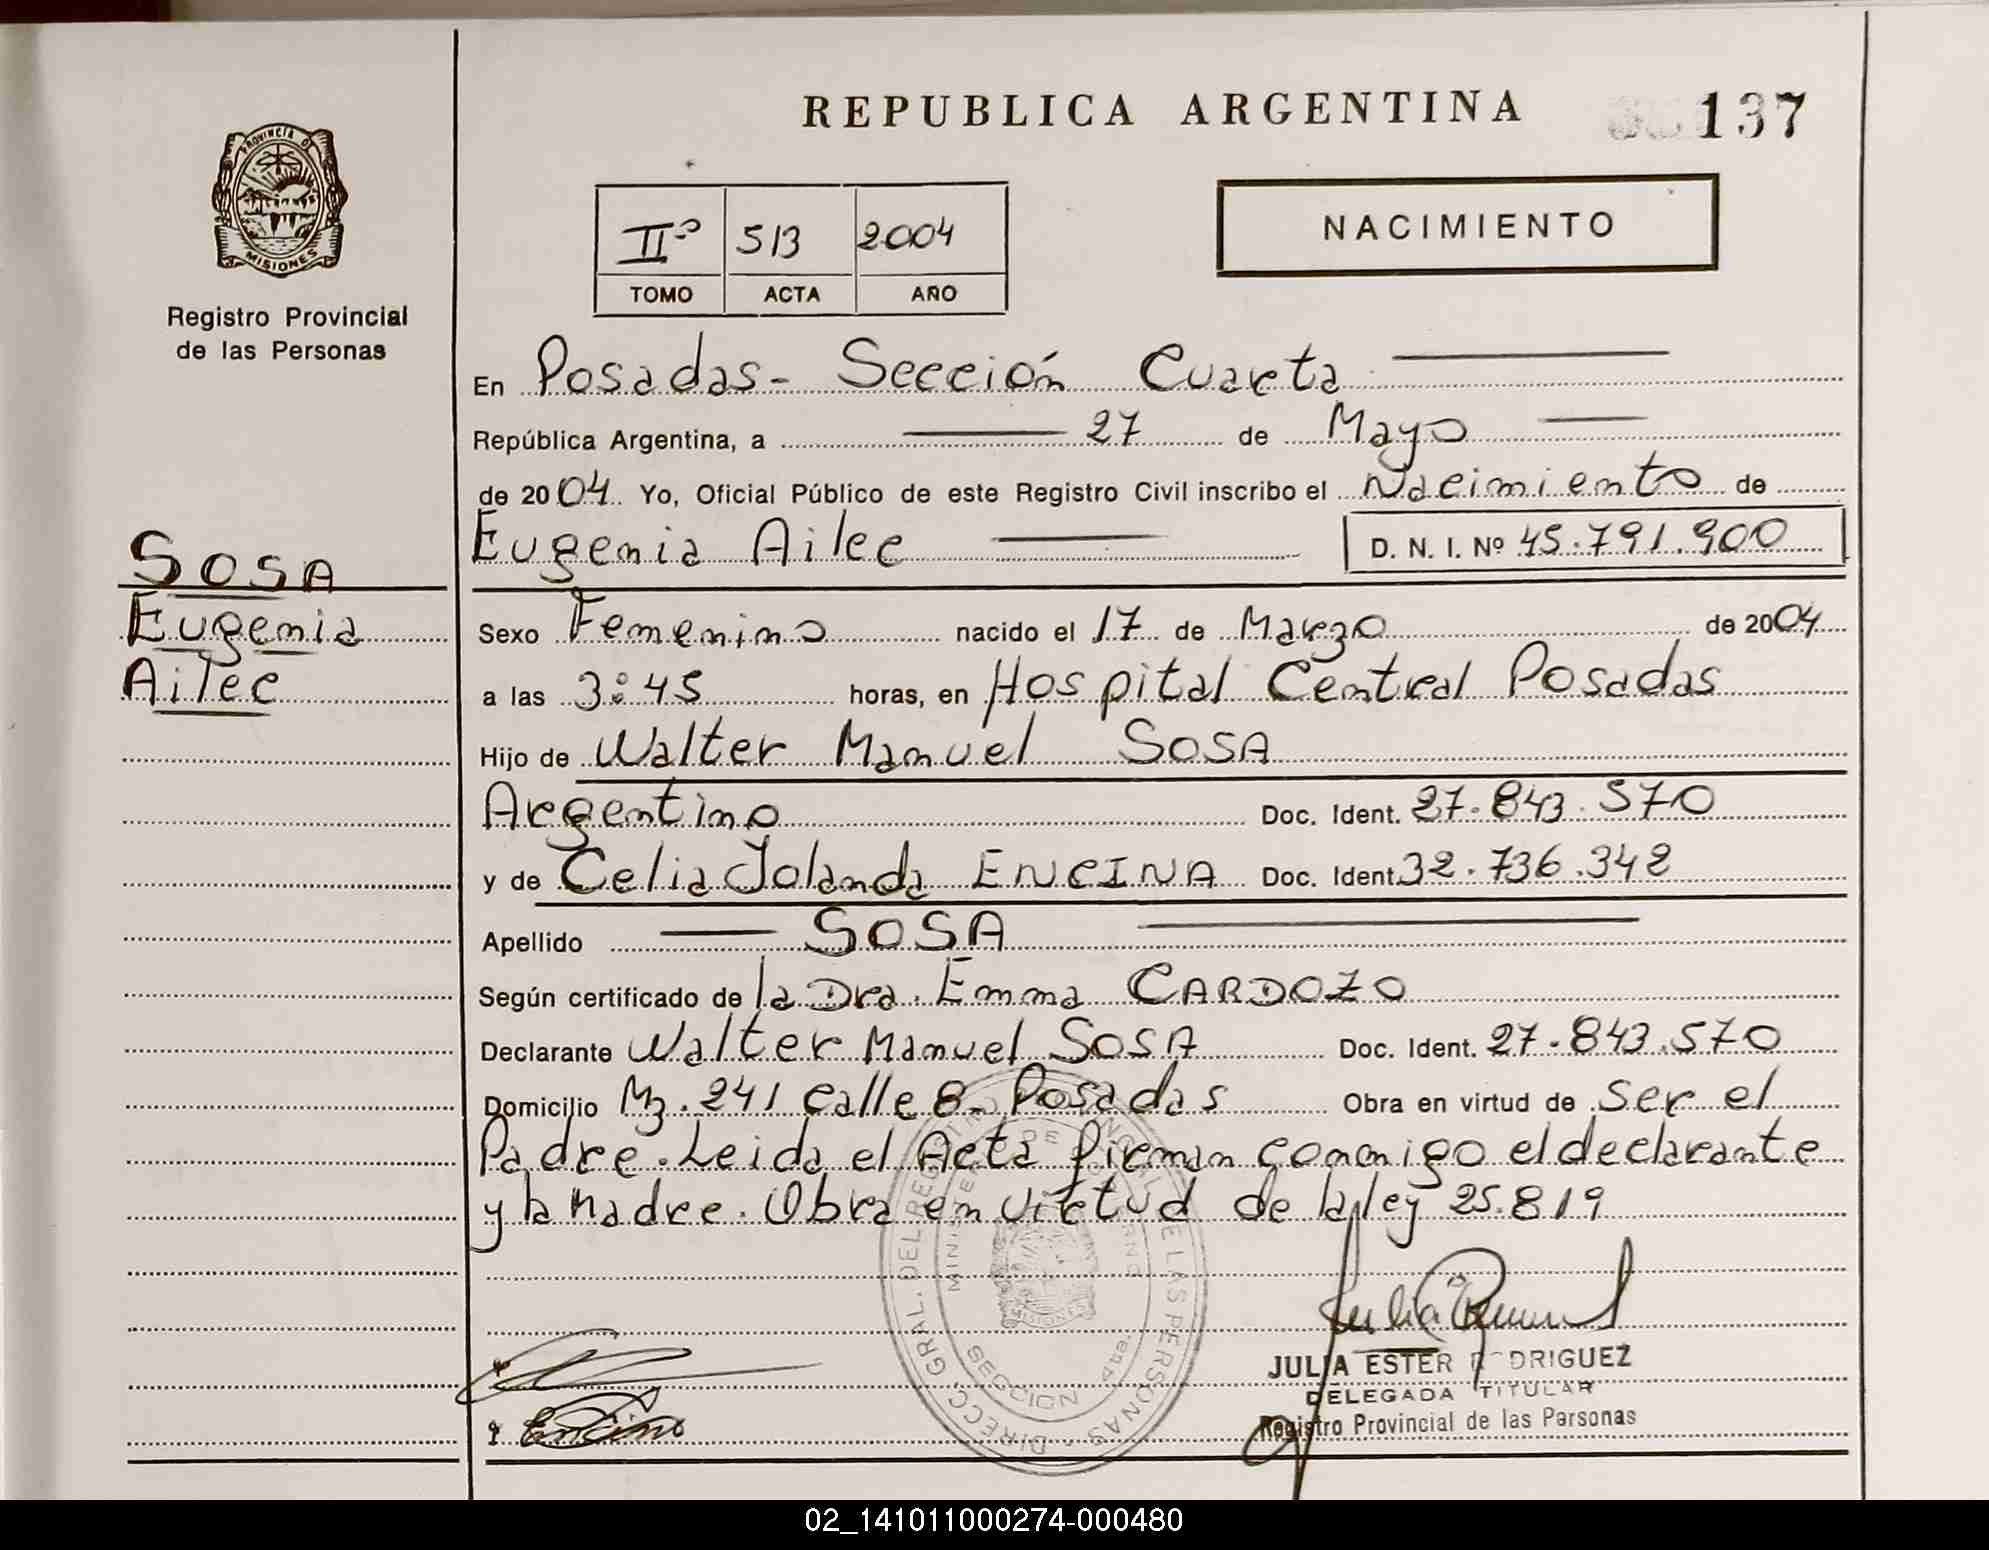 REPUBLICA ARGENTINA
137
PROVINCIA D
MISIONES
Registro Provincial
de las Personas
IIº 513 2004
TOMO ACTA AÑO
NACIMIENTO
En Posadas - Sección Cuarta
República Argentina, a 27 de Mayo
de 2004 Yo, Oficial Público de este Registro Civil inscribo el Nacimiento de
Eugenia Ailec D. N. I. Nº 45.791.900
SOSA
Eugenia
Ailec
Sexo Femenino nacido el 17 de Marzo de 2004
a las 3:45 horas, en Hospital Central Posadas
Hijo de Walter Manuel SOSA
Argentino Doc. Ident. 27.843.570
y de Celia Jolanda ENCINA Doc. Ident. 32.736.342
Apellido SOSA
Según certificado de la Dra. Emma CARDOZO
Declarante Walter Manuel SOSA Doc. Ident. 27.843.570
Domicilio Mz. 241 calle 8 - Posadas Obra en virtud de ser el
Padre. Leida el Acta firman conmigo el declarante
y la Madre. Obra en virtud de la ley 25.819
DIRECC. GRAL. DEL REGISTRO PROVINCIAL DE LAS PERSONAS
SECCION 4ta.
MISIONES
Encina
JULIA ESTER RODRIGUEZ
DELEGADA TITULAR
Registro Provincial de las Personas
02_141011000274-000480